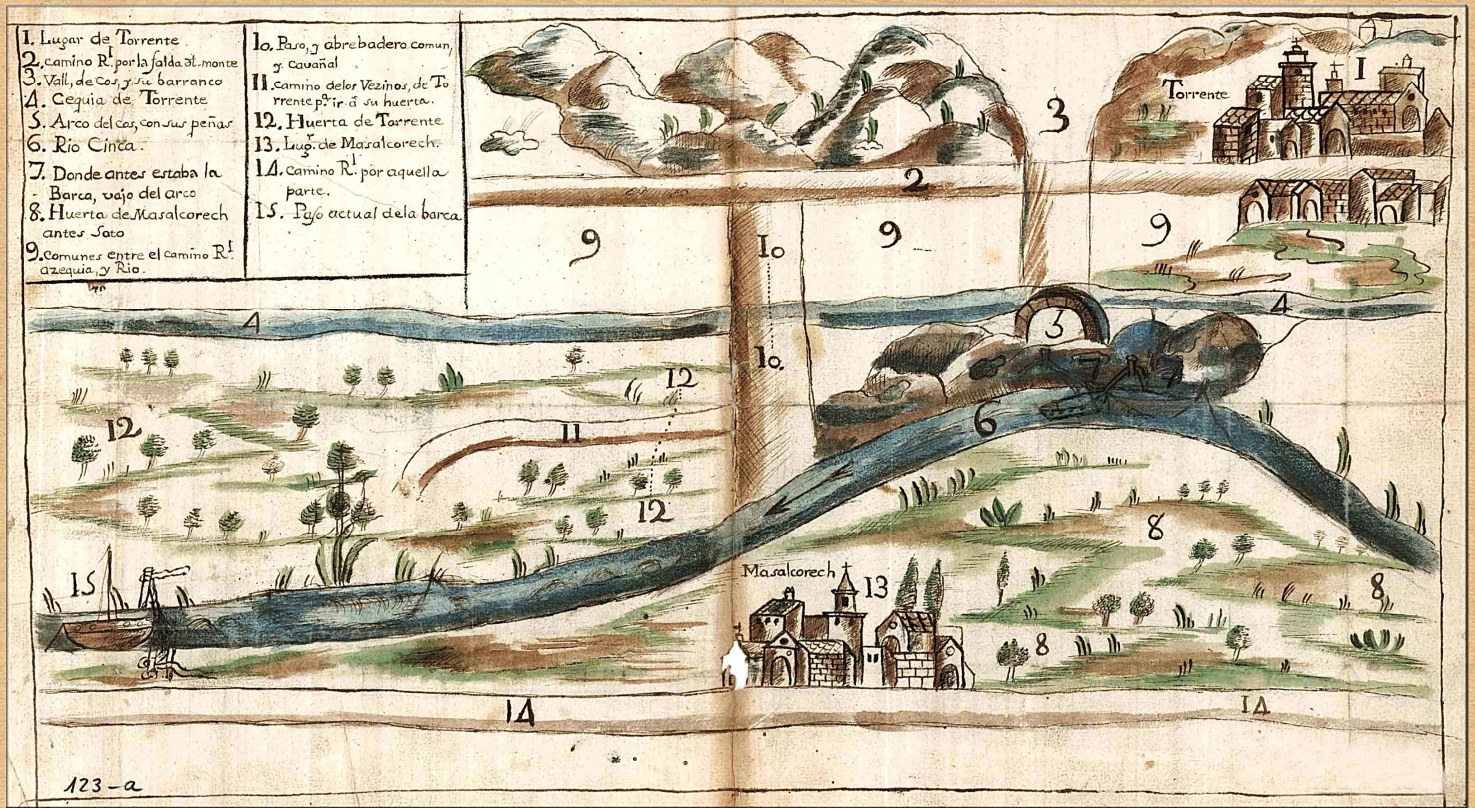 1. Lugar de Torrente
2. camino Rl. por la falda dl. monte
3. Vall, de Cos, y su barranco
4. Cequia de Torrente
5. Arco del cos, con sus peñas
6. Rio Cinca.
7. Donde antes estaba la
Barca, vajo del arco
8. Huerta de Masalcorech
antes soto
9. comunes entre el camino Rl.
azequia, y Rio.
10. Paso, y abrebadero comun,
y cavañal
11. Camino delos Vezinos, de To
rrente pa. ir á su huerta.
12. Huerta de Torrente
13. Lugr. de Masalcorech.
14. camino Rl. por aquella
parte.
15. Paso actual dela barca.
1
Torrente
3
2
9
10
9
9
4
4
5
10.
7
12
12
11
6
12
8
15
Masalcorech
13
8
8
14
14
123-a